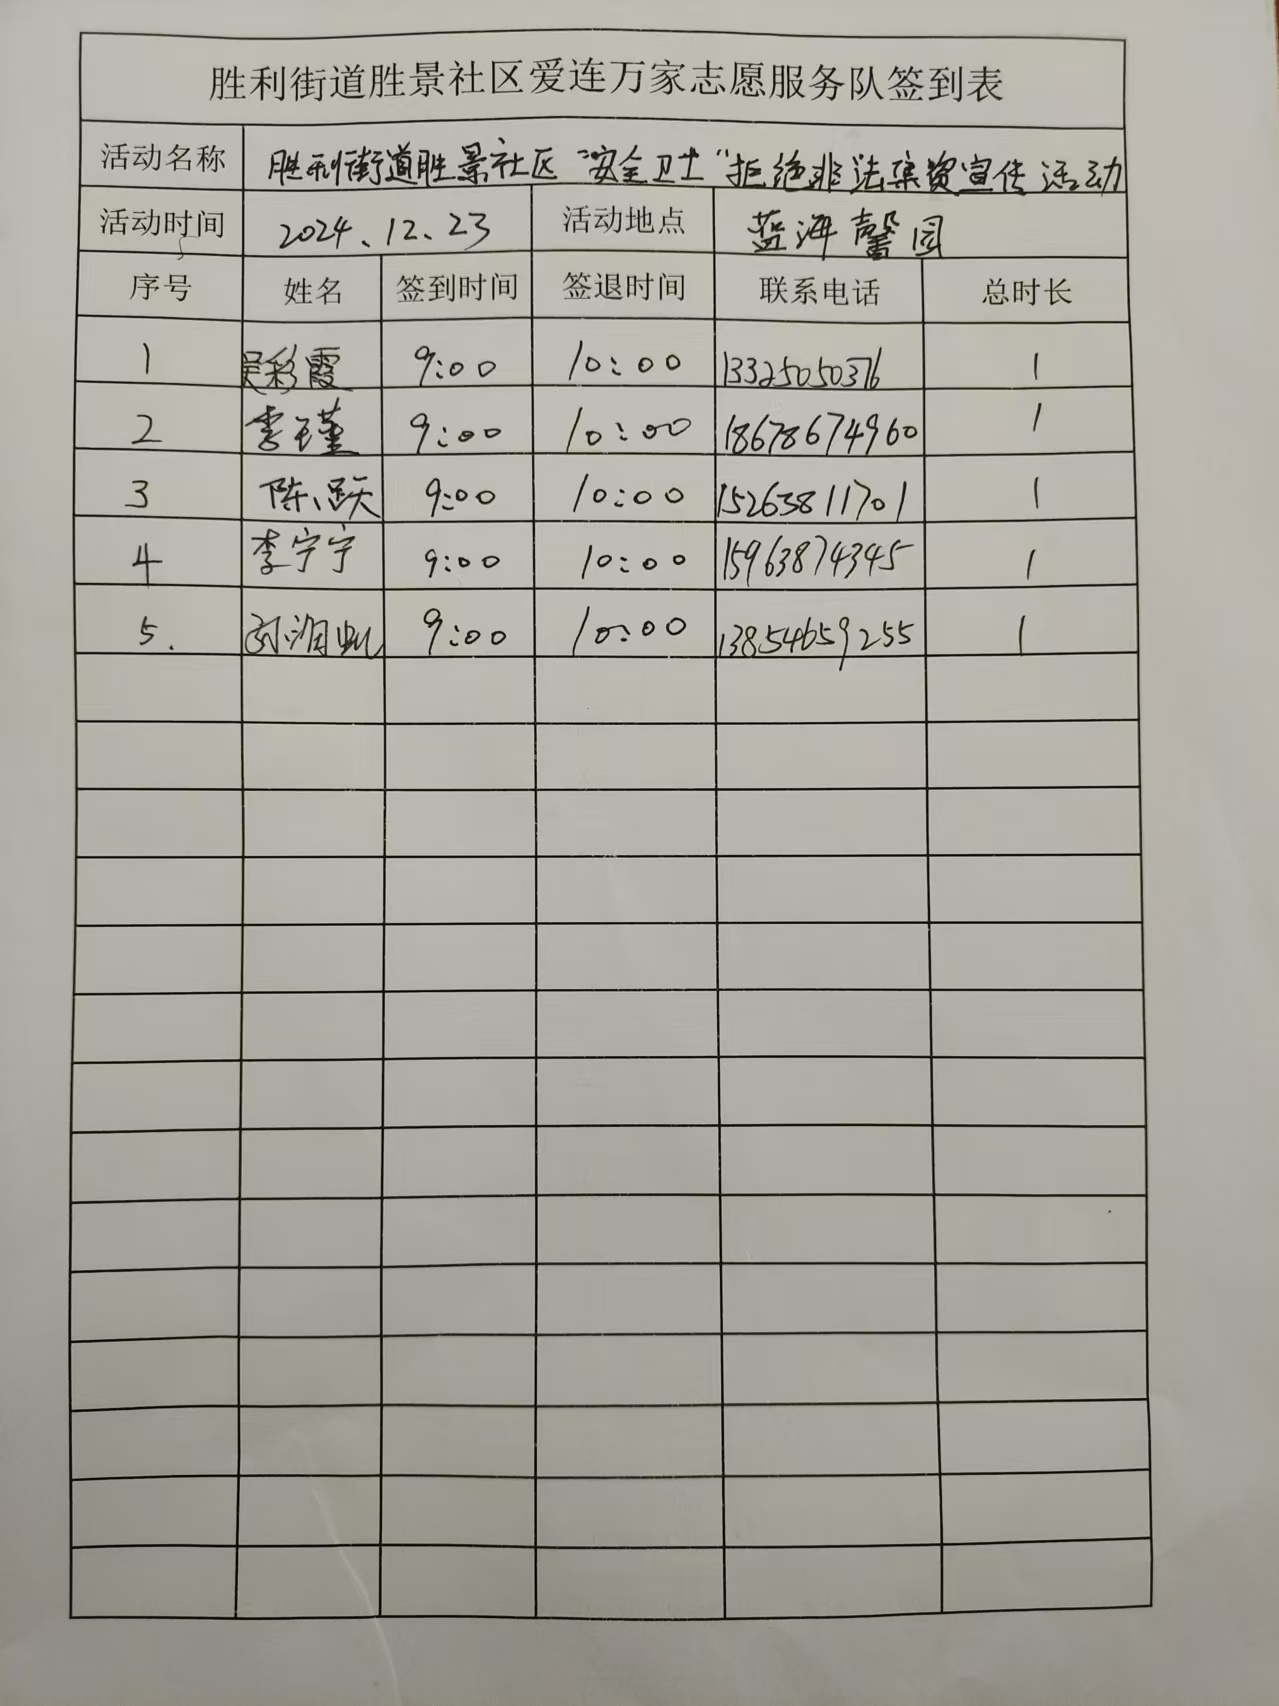 胜利街道胜景社区爱连万家志愿服务队签到表
活动名称 胜利街道胜景社区“安全卫士”拒绝非法集资宣传活动
活动时间 2024、12、23 活动地点 蓝海馨园
序号 姓名 签到时间 签退时间 联系电话 总时长
1 吴彩霞 9:00 10:00 13325050376 1
2 李瑾 9:00 10:00 18678674960 1
3 陈跃 9:00 10:00 15263811701 1
4 李宁宁 9:00 10:00 15963874345 1
5. 9:00 10:00 13854659255 1